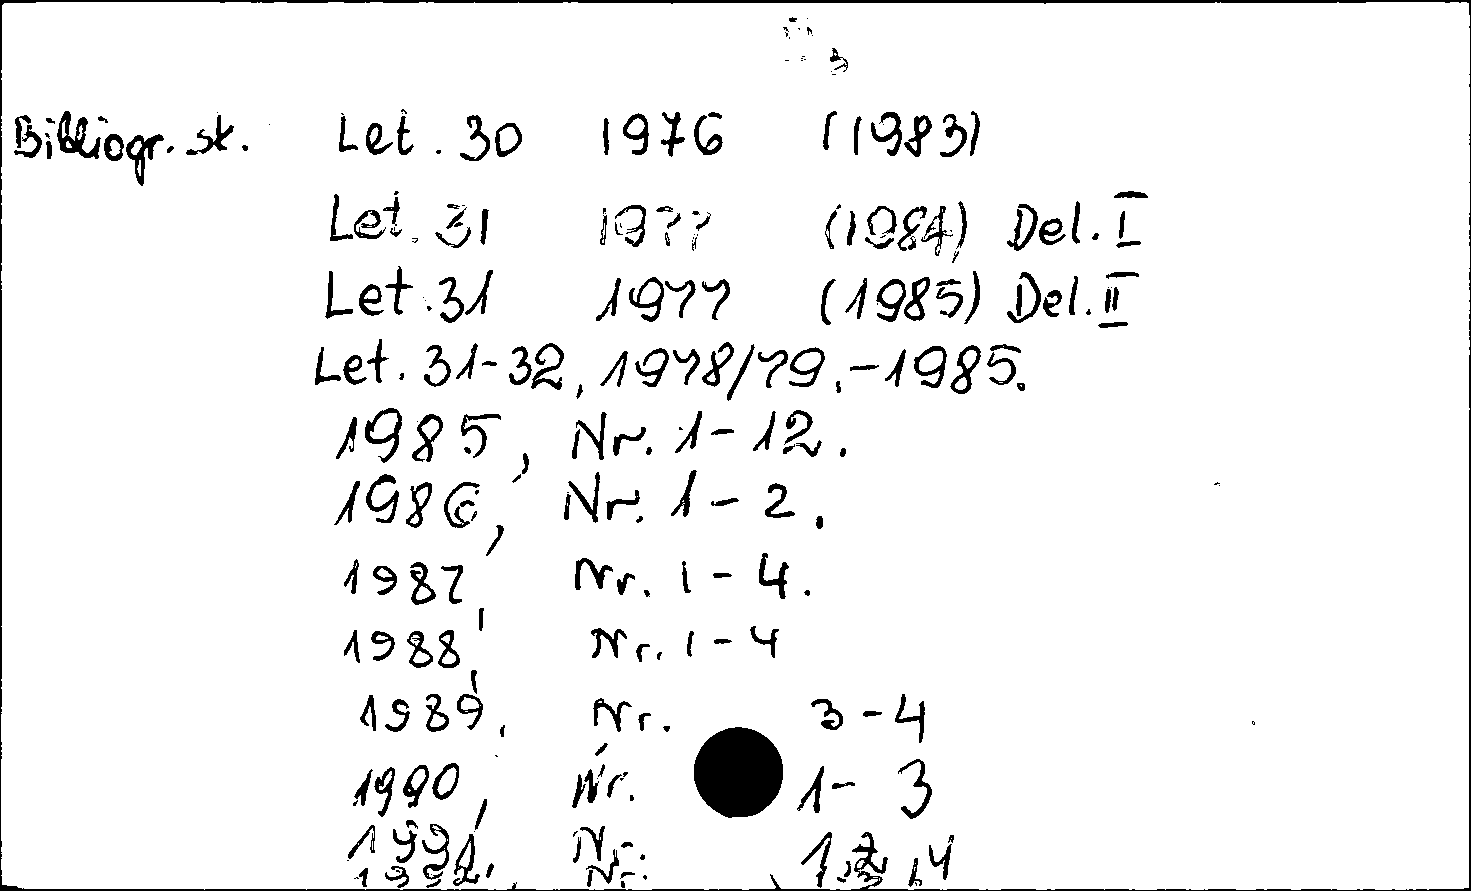 Bibliogr. sk. Let. 30 1976 (1983)
Let. 31 1977 (1984) Del. I
Let. 31 1977 (1985) Del. II
Let. 31-32, 1978/79.-1985.
1985, Nr. 1-12.
1986, Nr. 1-2.
1987, Nr. 1-4.
1988, Nr. 1-4
1989, Nr. 3-4
1990, Nr. 1-3
1991, Nr.
Nr.